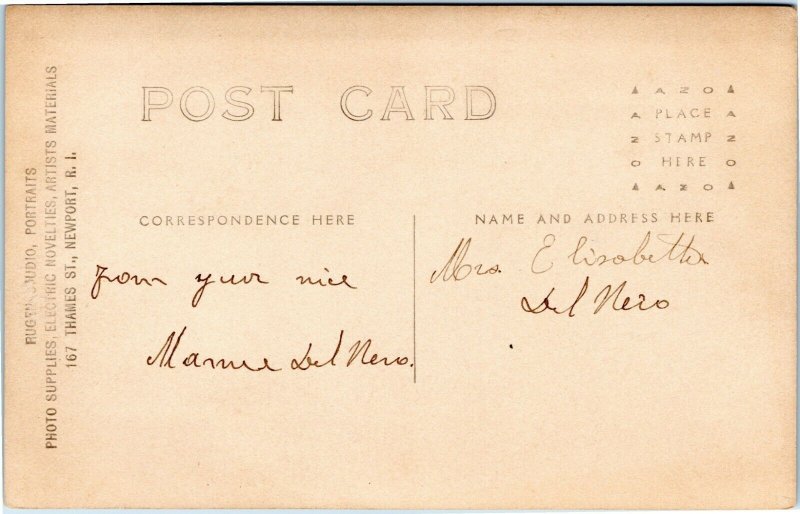 POST CARD
AZO
PLACE
STAMP
HERE
AZO
CORRESPONDENCE HERE
NAME AND ADDRESS HERE
from your nice
Mamie Del Nero.
Mrs. Elisabetta
Del Nero
PORTRAITS
PHOTO SUPPLIES, ELECTRIC NOVELTIES, ARTISTS MATERIALS
167 THAMES ST., NEWPORT, R. I.